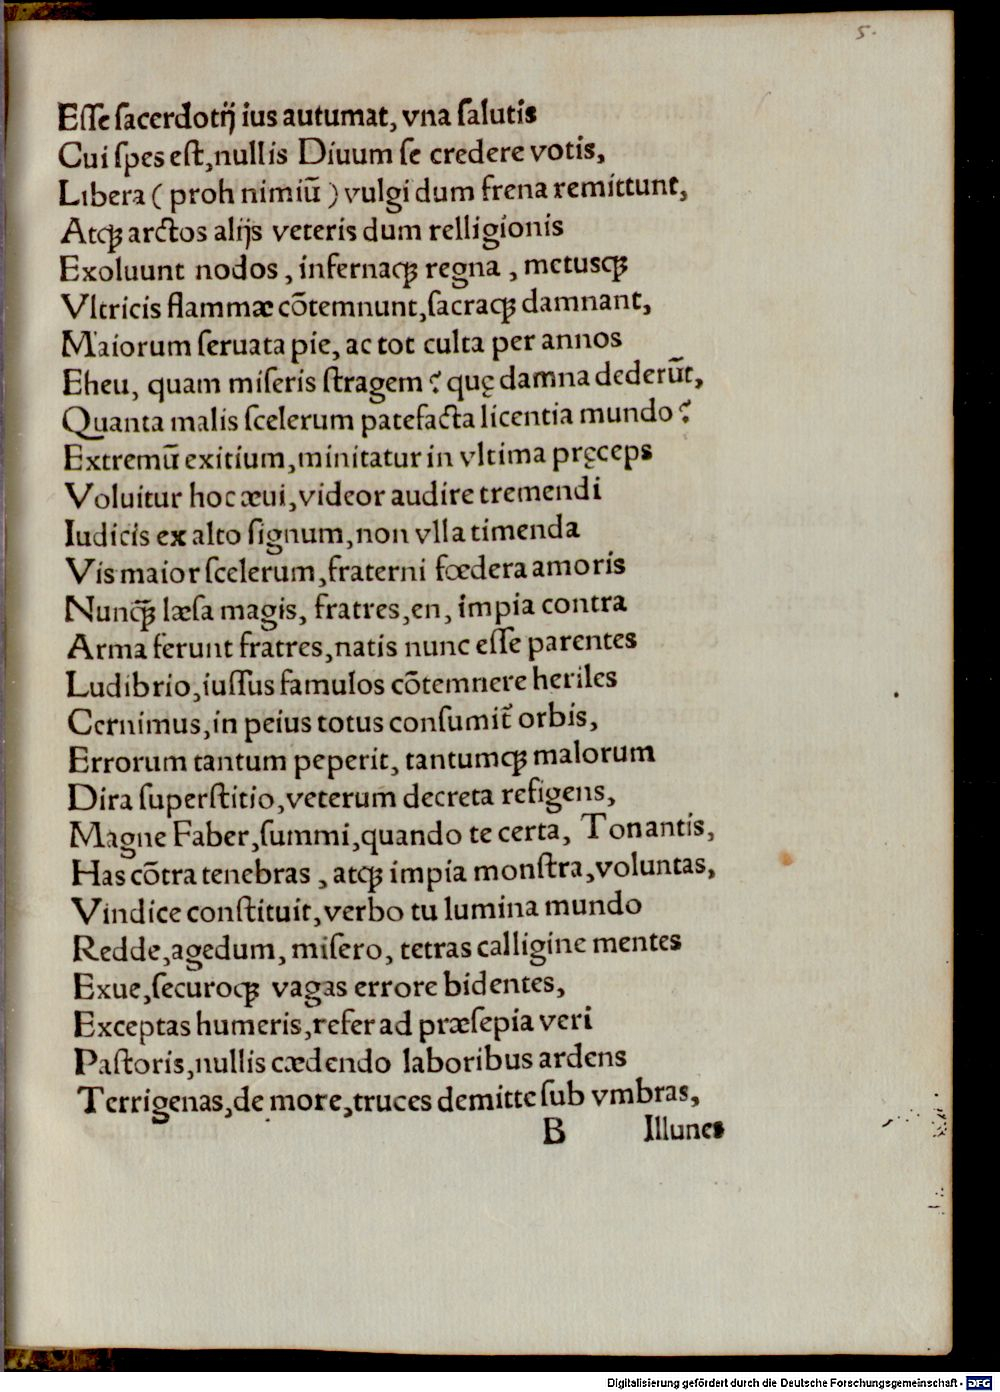 5.
Eſſe ſacerdotĳ ius autumat, vna ſalutis
Cui ſpes eſt, nullis Diuum ſe credere votis,
Libera ( proh nimiū ) vulgi dum frena remittunt,
Atqꝫ arctos alĳs veteris dum relligionis
Exoluunt nodos , infernaqꝫ regna , metusqꝫ
Vltricis flammæ cōtemnunt, ſacraqꝫ damnant,
Maiorum ſeruata pie, ac tot culta per annos
Eheu, quam miſeris ſtragem ? quę damna dederūt,
Quanta malis ſcelerum patefacta licentia mundo ?
Extremū exitium, minitatur in vltima pręceps
Voluitur hoc æui, videor audire tremendi
Iudicis ex alto ſignum, non vlla timenda
Vis maior ſcelerum, fraterni fœdera amoris
Nunqꝫ̄ læſa magis, fratres, en, impia contra
Arma ferunt fratres, natis nunc eſſe parentes
Ludibrio, iuſſus famulos cōtemnere heriles
Cernimus, in peius totus conſumit᷑ orbis,
Errorum tantum peperit, tantumqꝫ malorum
Dira ſuperſtitio, veterum decreta refigens,
Magne Faber, ſummi, quando te certa, Tonantis,
Has cōtra tenebras , atqꝫ impia monſtra, voluntas,
Vindice conſtituit, verbo tu lumina mundo
Redde, agedum, miſero, tetras calligine mentes
Exue, ſecuroqꝫ vagas errore bidentes,
Exceptas humeris, refer ad præſepia veri
Paſtoris, nullis cædendo laboribus ardens
Terrigenas, de more, truces demitte ſub vmbras,
B Illunes
Digitalisierung gefördert durch die Deutsche Forschungsgemeinschaft - DFG